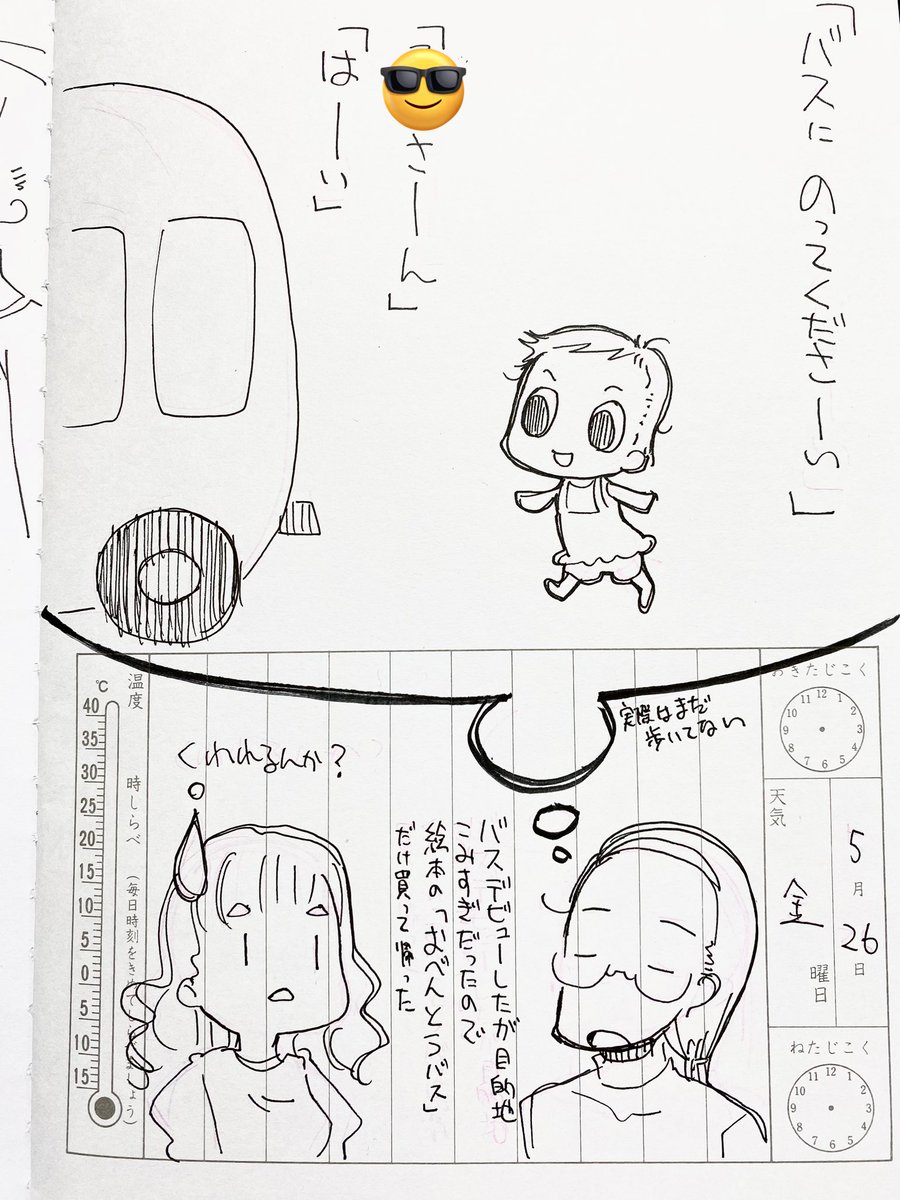 「バスに のってくださーい」
さーん」
「はーい」
実際はまだ
歩いてない
くわれるんか?
バスデビューしたが目的地
こみすぎだったので
絵本の「おべんとうバス」
だけ買って帰った
おきたじこく
12
1
2
3
4
5
6
7
8
9
10
11
天気
5
月
26
日
金
曜日
ねたじこく
12
1
2
3
4
5
6
7
8
9
10
11
温度
℃
40
35
30
25
20
15
10
5
0
5
10
15
時しらべ